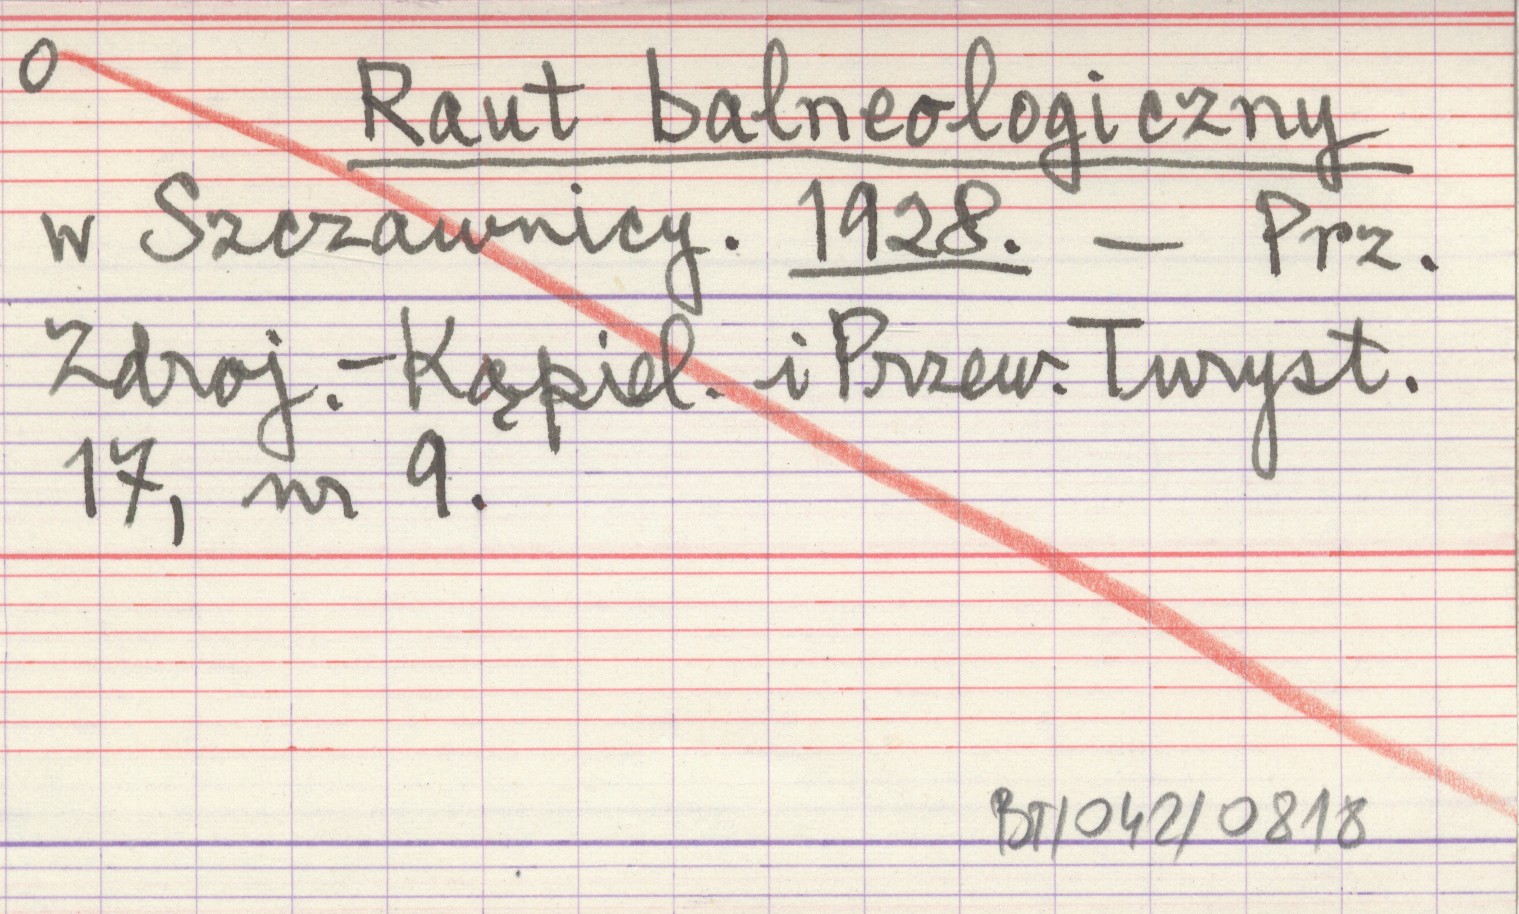 O
Raut balneologiczny
w Szczawnicy. 1928. — Prz.
Zdroj.-Kąpiel. i Przew. Turyst.
17, nr 9.
BT/042/0818